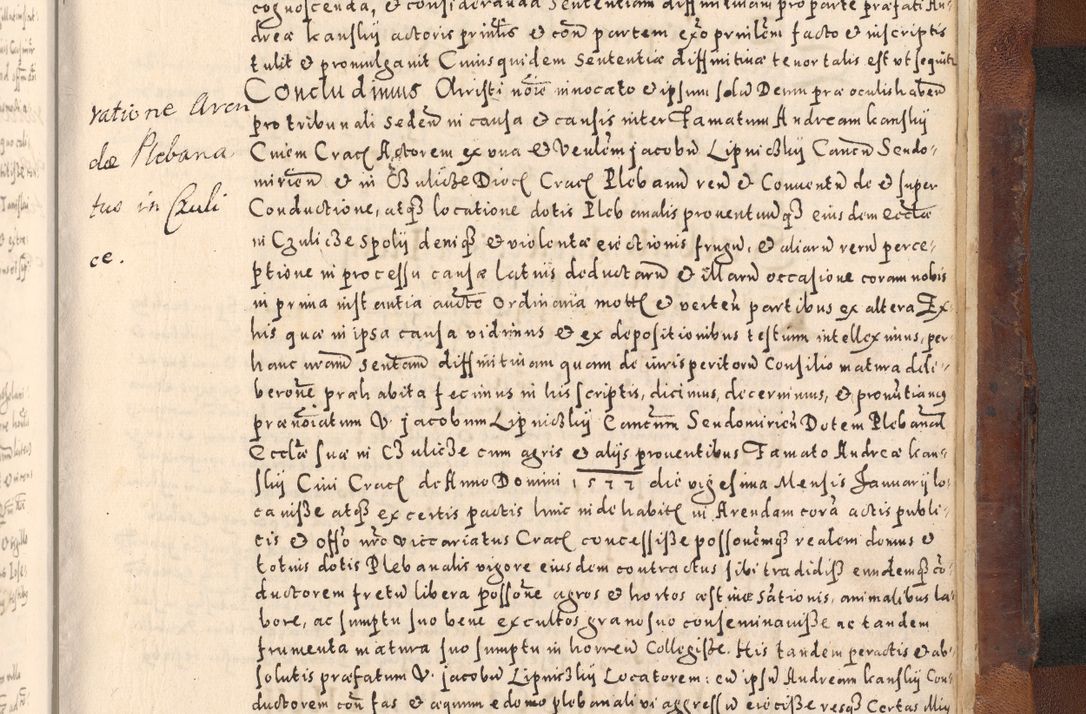 cognoscenda, et consideranda Sententiam diffinitivam pro parte præfati An-
dreæ Kanskij actoris prin͠lis et con͠ partem ex͠o pnile͠m facto et in scriptis
tulit et promulgavit Cuius quidem Sententiæ diffinitivæ tenor talis est ut sequit͠r
Concludimus Christi no͠ie invocato et ipsum solu͠ Deum præ oculis haben͠
pro tribunali seden͠ in causa et causis inter Famatum Andream Kanskij
Civem Crac͠ Actorem ex una et Ven͠lem Jacobu͠ Lipniczkij Canon͠ Sendo-
mirien͠ et in Czulicze Dioc͠ Crac͠ Pleban͠ reu͠ et Conventu͠ de et super
Conductione, atq͠ locatione dotis Plebanalis proventuumq͠ eiusdem eccl͠æ
in Czulicze spolij deniq͠ et violentæ eiectionis frugu͠, et aliaru͠ reru͠ perce-
ptione in processu causæ latius deductaru͠ et illaru͠ occasione coram nobis
in prima instantia auct͠e ordinaria mott͠ et verten͠ partibus ex altera Ex
his quæ in ipsa causa vidimus et ex depositionibus testium intelleximus, per
hanc n͠ram Sent͠am diffinitivam quam de iurisperitoru͠ Consilio matura deli-
bero͠ne præhabita fecimus in his scriptis, dicimus, decernimus, et pronu͠tiamus
præno͠iatum V. Jacobum Lipniczkij Canon͠um Sendomirien͠ Dotem Plebanal͠
Eccl͠æ suæ in Czulicze cum agris et alijs proventibus Famato Andreæ Kans-
skij Civi Crac͠ de Anno Domini 1577 die vigesima Mensis Januarij lo-
cavisse atq͠ ex certis pactis hinc inde habit͠ in Arendam cora͠ actis publi-
cis et offo͠ n͠ro Viccariatus Crac͠ concessisse posso͠nemq͠ realem domus et
totius dotis Plebanalis vigore eiusdem contractus sibi tradidisse eundemq͠ co͠-
ductorem fretu͠ libera posso͠ne agros et hortos æstivæ sa͠tionis, animalibus la-
bore, ac sumptu suo bene excultos grano suo conseminavisse ac tandem
frumenta matura suo sumptu in horreu͠ Collegisse. His tandem peractis et ab-
solutis præfatum V. Jacobu͠ Lipniczkij Locatorem: eu͠ ipsu͠ Andream Kanskij Con-
ductorem con͠ fas et æquum e domo plebanali vi aggressu͠ eiecisse resq͠ Certas
ratione Aren
dæ Plebana
tus in Czuli
ce.